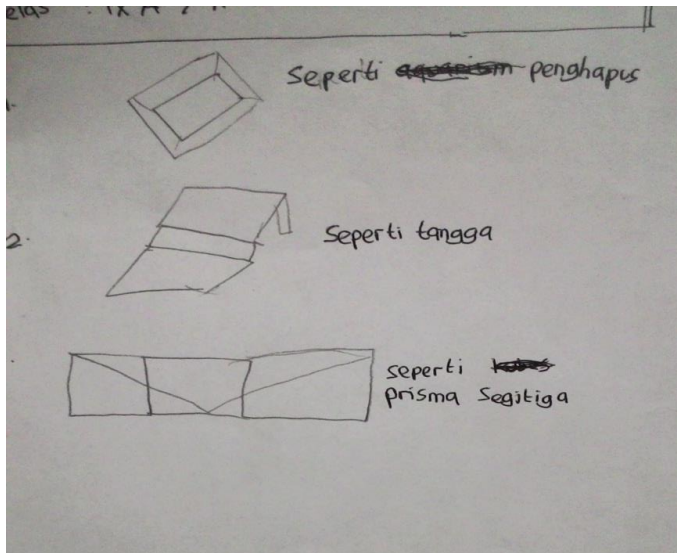 elas : IX A
Seperti penghapus
2. Seperti tangga
seperti
prisma Segitiga